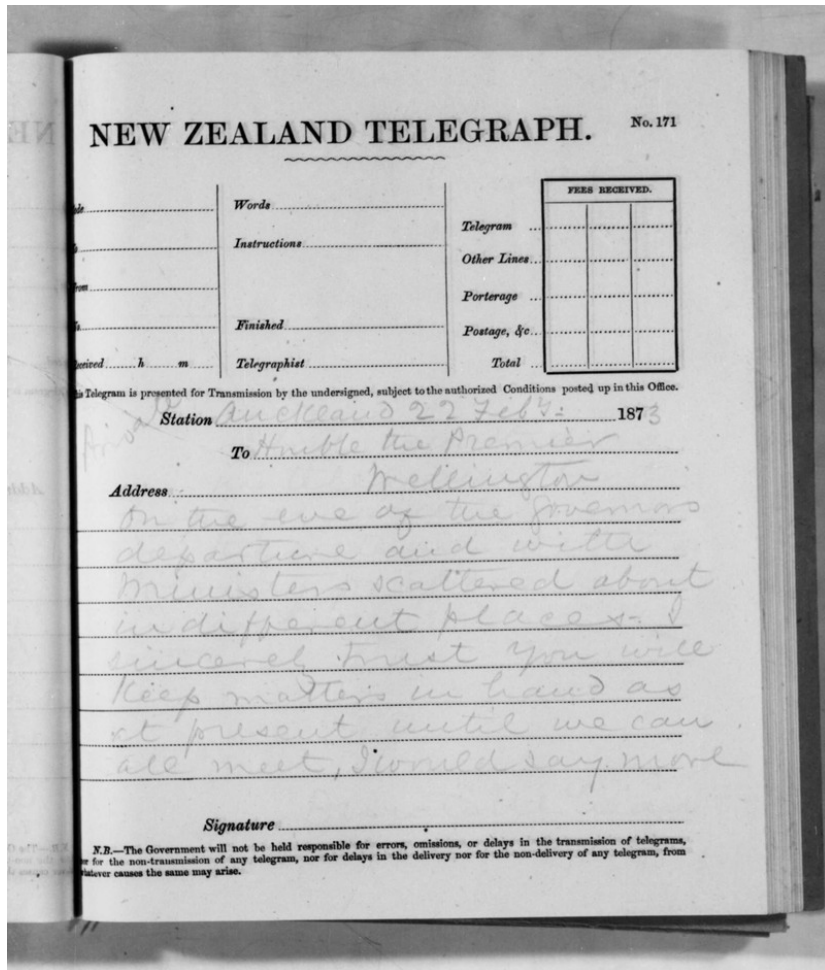 NEW ZEALAND TELEGRAPH.
No. 171
FEES RECEIVED.
Words
Instructions
Finished
Telegraphist
Telegram
Other Lines
Porterage
Postage, &c
Total
h m
Telegram is presented for Transmission by the undersigned, subject to the authorized Conditions posted up in this Office.
Private
Station Auckland 22 Feby: 1873
To Honble the Premier
Address Wellington
On the eve of the Governors
departure and with
Ministers scattered about
in different places - I
sincerely trust you will
keep matters in hand as
at present until we can
all meet, I would say more
Signature
N.B.—The Government will not be held responsible for errors, omissions, or delays in the transmission of telegrams,
or for the non-transmission of any telegram, nor for delays in the delivery nor for the non-delivery of any telegram, from
whatever causes the same may arise.